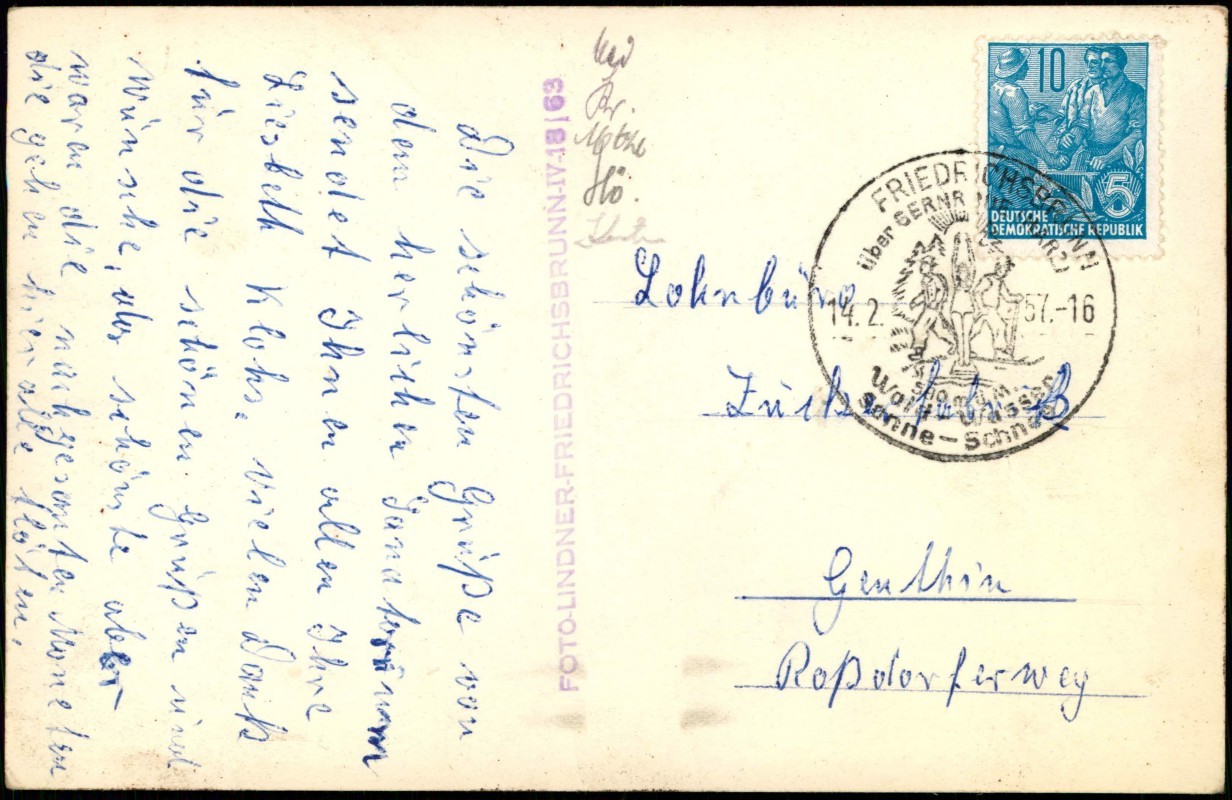 Die schönsten Grüße von
dem herlichen Sanatorium
sendet Ihnen allen Ihre
Liesbeth Klohs. Vielen Dank
für die schönen Grüßen und
Wünsche, das schönste aber
waren die nachgesanten Moneten
die gehen hier alle flöten.
FOTO-LINDNER-FRIEDRICHSBRUNN-IV-18|63
Hö.
10
5
DEUTSCHE
DEMOKRATISCHE REPUBLIK
FRIEDRICHSBRUNN
über GERNRODE (HARZ)
14.2.57.-16
Wald-Wasser
Sonne-Schnee
Lohnbüro
Zuckerfabrik
Genthin
Roßdorferweg